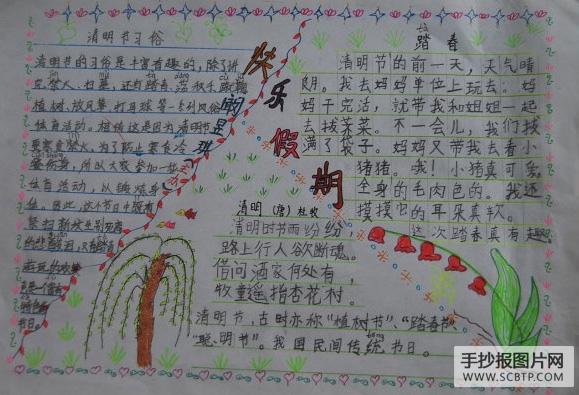 清明节习俗
清明节的习俗是丰富有趣的，除了讲
究禁火、扫墓，还有踏青、荡秋千、蹴鞠、
植树、放风筝、打马球等一系列风俗
体育活动。相传这是因为清明节
要寒食禁火，为了防止寒食冷
餐伤身，所以大家参加一些
体育活动，以锻炼身
体。因此，这个节日中既有
快
乐
假
期
踏春
清明节的前一天，天气晴
朗。我去妈妈单位上玩去。妈
妈干完活，就带我和姐姐一起
去拔荠菜。不一会儿，我们拔
满了袋子。妈妈又带我去看小
猪猪。哦！小猪真可爱。
全身的毛肉色的。我还
摸摸它的耳朵真软。
这次踏春真有趣。
清明（唐）杜牧
清明时节雨纷纷，
路上行人欲断魂。
借问酒家何处有，
牧童遥指杏花村。
清明节，古时亦称“植树节”、“踏春节”、
“聪明节”。我国民间传统节日。
手抄报图片网
WWW.SCBTP.COM